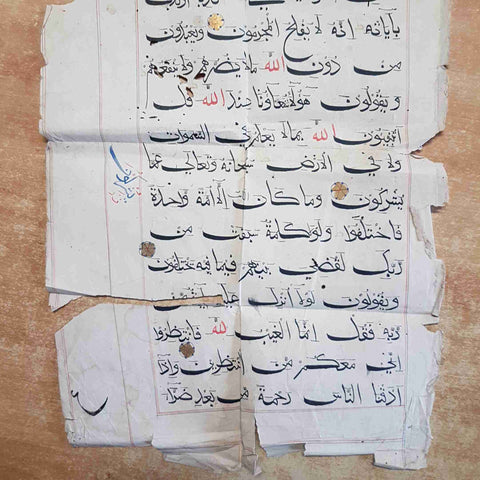 بآياته انه لا يفلح المجرمون ويعبدون
من دون الله مالا يضرهم ولا ينفعهم
ويقولون هؤلاء شفعاؤنا عند الله قل
اتنبئون الله بما لا يعلم في السموات
ولا في الارض سبحانه وتعالى عما
يشركون وما كان الا امة واحدة
فاختلفوا ولولا كلمة سبقت من
ربك لقضي بينهم فيما فيه يختلفون
ويقولون لولا انزل عليه
ربه فقل انما الغيب لله فانتظروا
اني معكم من المنتظرين واذا
اذقنا الناس رحمة من بعد ضراء